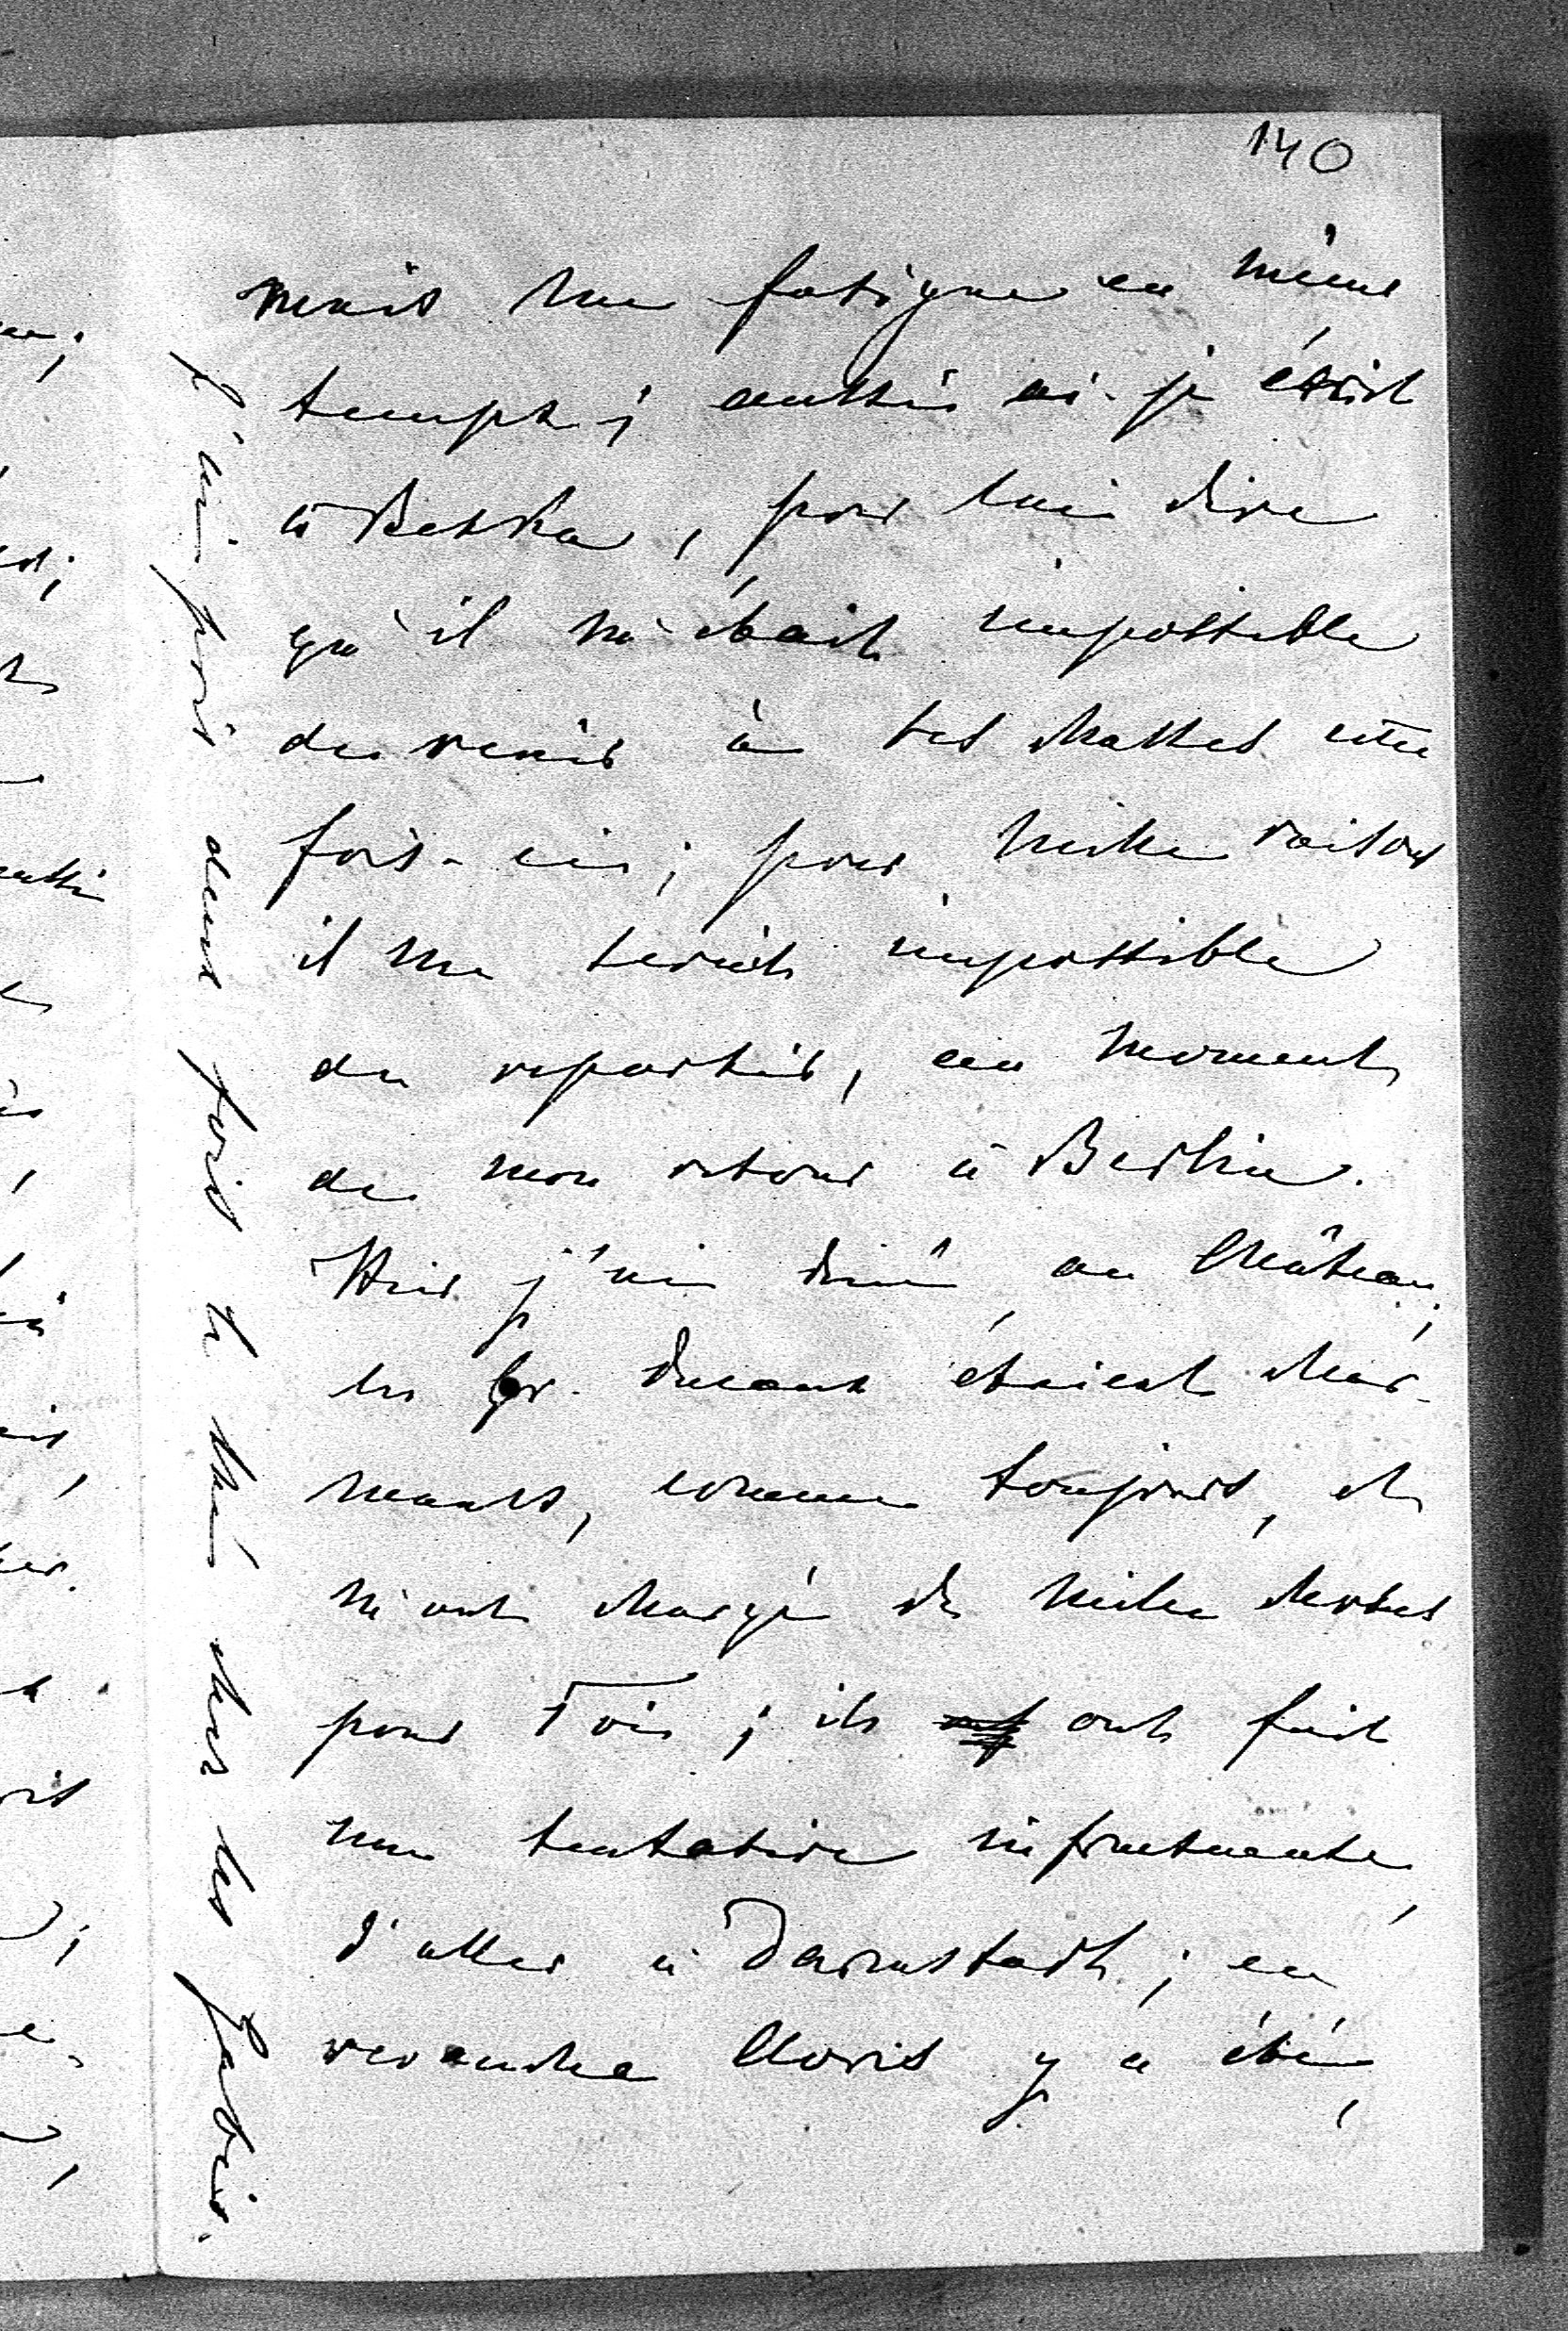 140
mais me fatigue en même
temps ; aussi ai-je écrit
à Bashka, pour lui dire
qu'il m'était impossible
de venir à tes chasses cette
fois-ci ; pour mille raisons
il me serait impossible
de repartir, au moment
de mon retour à Berlin.
Hier j'ai diné au Château ;
les Gr. Ducaux étaient char-
mants, comme toujours, et
m'ont chargé de mille choses
pour Toi ; ils ont fait
une tentative infructueuse,
d'aller à Darmstadt ; en
revanche Choris y a été,
J'ai pris deux fois le thé chez les